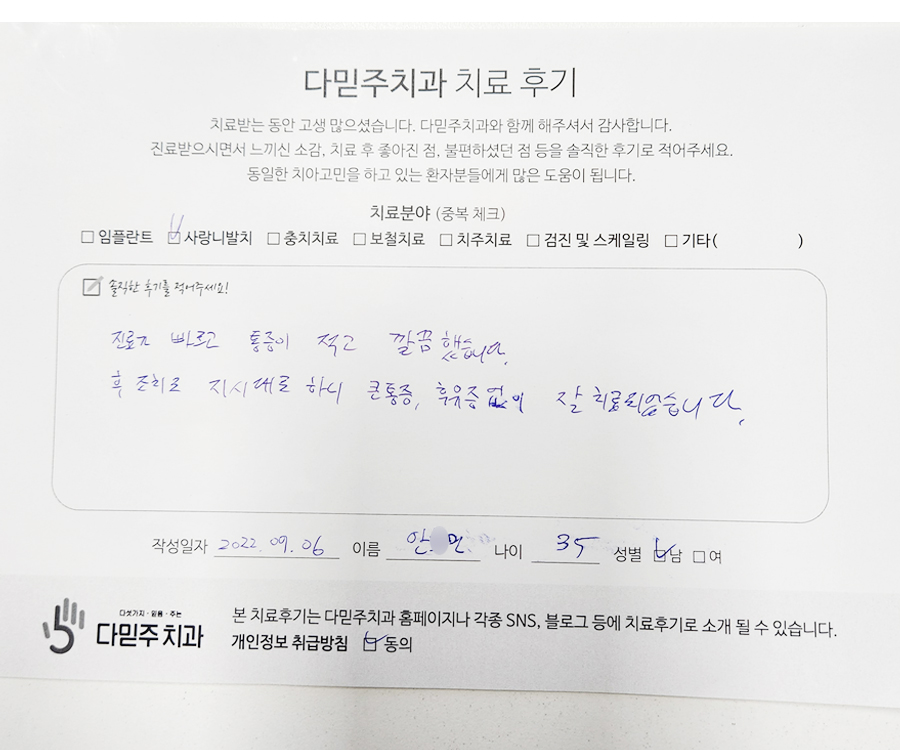 다믿주치과 치료 후기
치료받는 동안 고생 많으셨습니다. 다믿주치과와 함께 해주셔서 감사합니다.
진료받으시면서 느끼신 소감, 치료 후 좋아진 점, 불편하셨던 점 등을 솔직한 후기로 적어주세요.
동일한 치아고민을 하고 있는 환자분들에게 많은 도움이 됩니다.
치료분야 (중복 체크)
□ 임플란트 ☑ 사랑니발치 □ 충치치료 □ 보철치료 □ 치주치료 □ 검진 및 스케일링 □ 기타( )
솔직한 후기를 적어주세요!
진료가 빠르고 통증이 적고 깔끔했습니다.
후 조치로 지시대로 하니 큰통증, 후유증 없이 잘 치료되었습니다.
작성일자 2022. 09. 06 이름 안 민 나이 35 성별 ☑남 □여
다섯가지·믿음·주는
다믿주치과
본 치료후기는 다믿주치과 홈페이지나 각종 SNS, 블로그 등에 치료후기로 소개 될 수 있습니다.
개인정보 취급방침 ☑ 동의